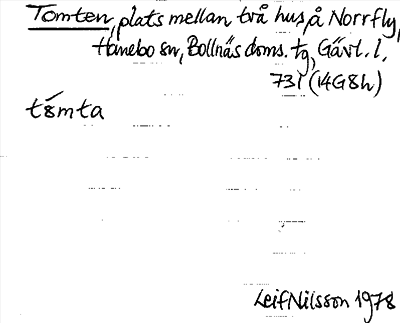 Tomten, plats mellan två hus å Norrfly,
Hanebo sn, Bollnäs doms. tg, Gävl. l.
731 (14G8h)
tömta
Leif Nilsson 1978